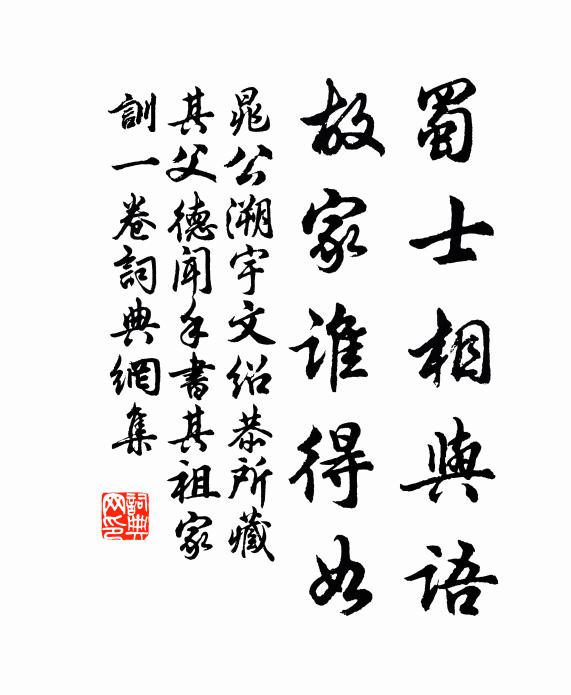 蜀士相與語
故家誰得如
晁公溯宇文绍恭所藏
其父德聞手書其祖家
訓一卷詞典網集
詞典網印